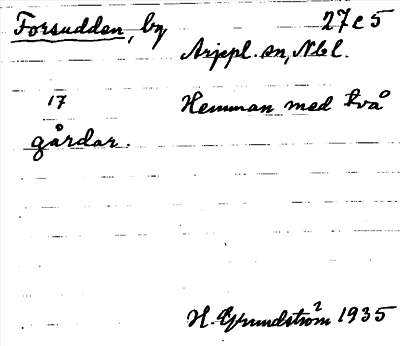 Forsudden, by 27e5
Arjepl. sn, Nbl.
17 Hemman med två
gårdar.
H. Grundström 1935